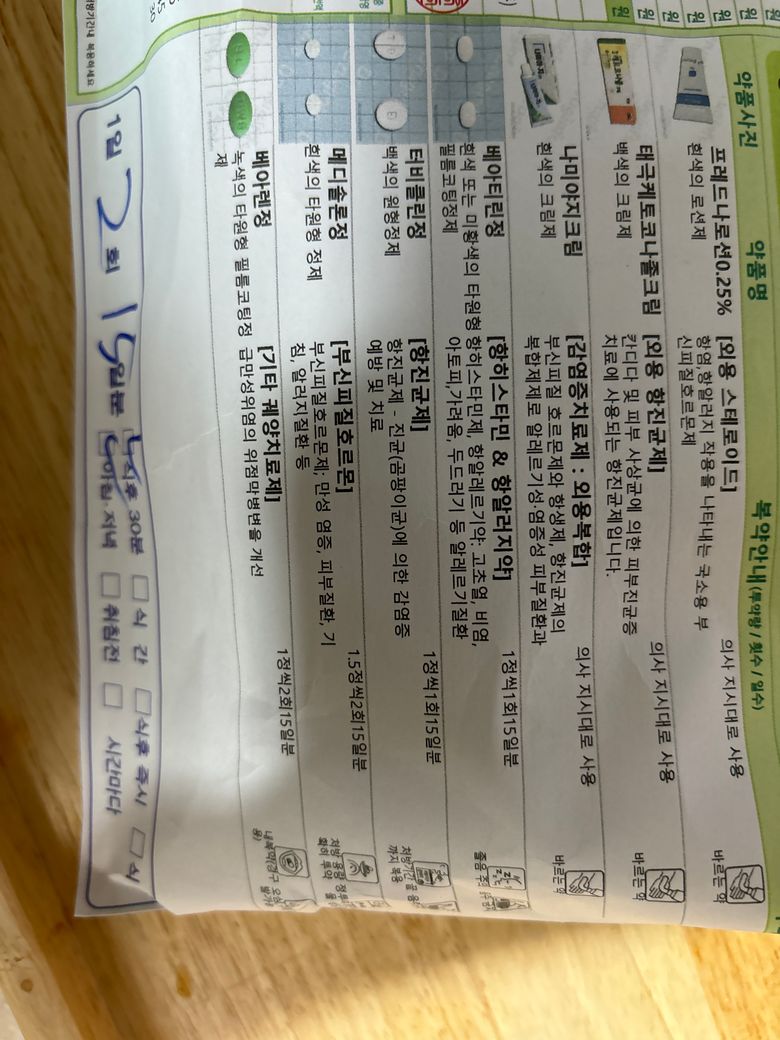 약품사진 약품명 복약안내(투약량 / 횟수 / 일수)
프레드나로션0.25%
흰색의 로션제
[외용 스테로이드]
항염,항알러지 작용을 나타내는 국소용 부
신피질호르몬제
의사 지시대로 사용
바르는 약
태극케토코나졸크림
백색의 크림제
[외용 항진균제]
칸디다 및 피부 사상균에 의한 피부진균증
치료에 사용되는 항진균제입니다.
의사 지시대로 사용
바르는 약
나미야지크림
흰색의 크림제
[감염증치료제 : 외용복합]
부신피질 호르몬제와 항생제, 항진균제의
복합제제로 알레르기성·염증성 피부질환과
의사 지시대로 사용
바르는 약
베아티린정
흰색 또는 미황색의 타원형
필름코팅정제
[항히스타민 & 항알러지약]
항히스타민제, 항알레르기약: 고초열, 비염,
아토피,가려움, 두드러기 등 알레르기질환
1정씩1회15일분
졸음 주의
터비클린정
백색의 원형정제
[항진균제]
항진균제 - 진균(곰팡이균)에 의한 감염증
예방 및 치료
1정씩1회15일분
처방기간을
까지 복용
메디솔론정
흰색의 타원형 정제
[부신피질호르몬]
부신피질호르몬제; 만성 염증, 피부질환, 기
침, 알러지질환 등
1.5정씩2회15일분
처방 용량
회히 투약
베아렌정
녹색의 타원형 필름코팅정
제
[기타 궤양치료제]
급만성위염의 위점막병변을 개선
1정씩2회15일분
1일 2회 15일분 식후 30분 식 간 식후 즉시 식
아침·저녁 취침전 시간마다